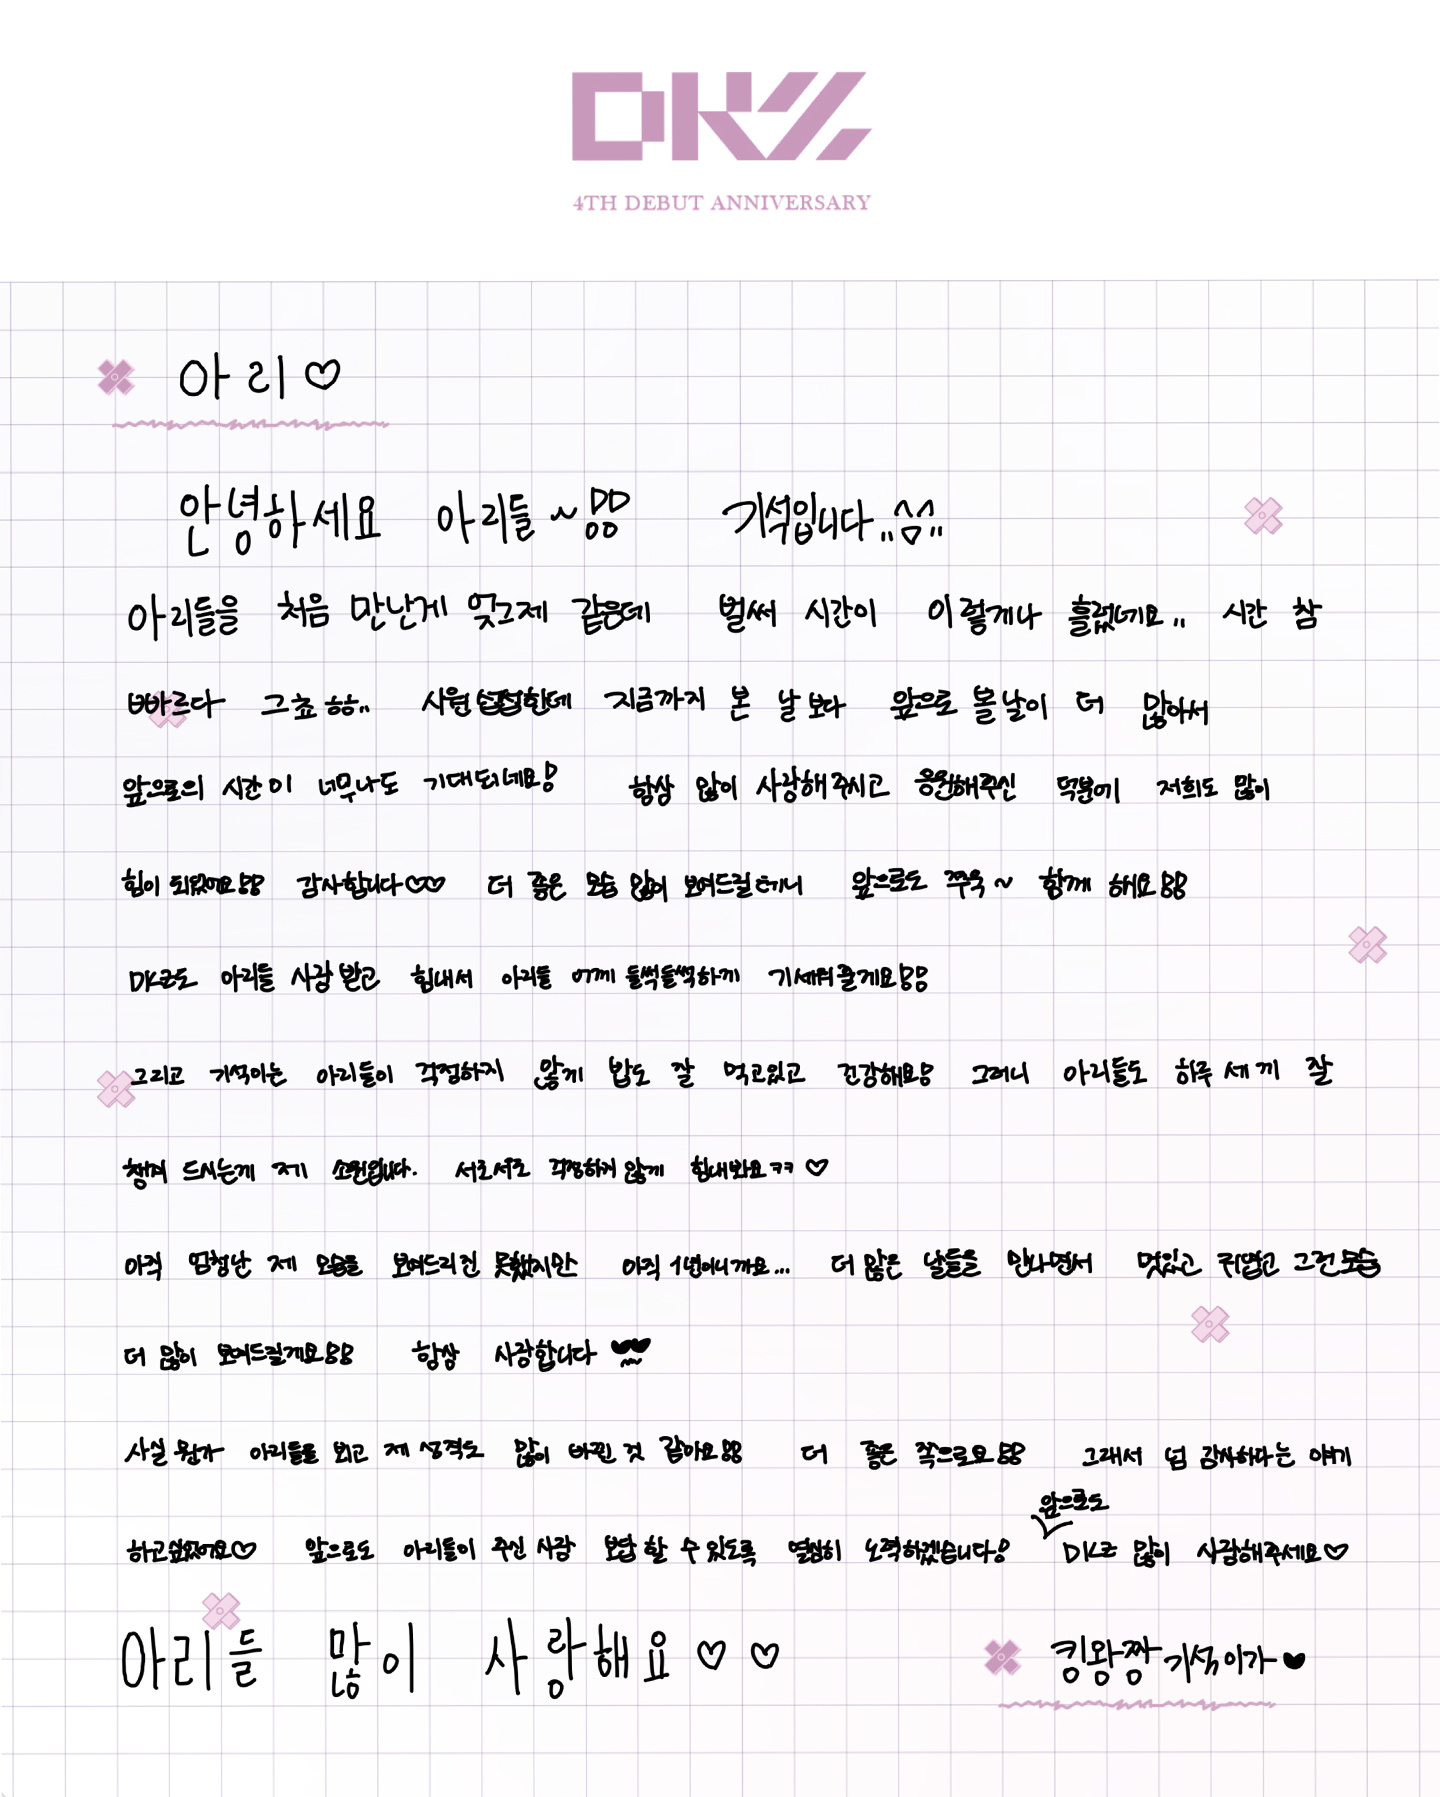 DKZ
4TH DEBUT ANNIVERSARY
아리♡
안녕하세요 아리들~!! 기석입니다..^^..
아리들을 처음 만난게 엊그제 같은데 벌써 시간이 이렇게나 흘렀네요.. 시간 참
빠르다 그쵸 ㅎㅎ.. 사원 섭섭한데 지금까지 본 날 보다 앞으로 볼 날이 더 많아서
앞으로의 시간이 너무나도 기대되네요! 항상 많이 사랑해주시고 응원해주신 덕분에 저희도 많이
힘이 되었어요!! 감사합니다♡♡ 더 좋은 모습 많이 보여드릴테니 앞으로도 쭈욱~ 함께 해요!!
DKZ도 아리들 사랑 받고 힘내서 아리들 어깨 들썩들썩하게 기세워줄게요!!
그리고 기석이는 아리들이 걱정하지 않게 밥도 잘 먹고있고 건강해요! 그러니 아리들도 하루 세끼 잘
챙겨 드시는게 제 소원입니다. 서로서로 걱정하지 않게 힘내봐요ㅋㅋ♡
아직 엄청난 제 모습을 보여드리진 못했지만 아직 1년이니까요... 더 많은 날들을 만나면서 멋있고 귀엽고 그런 모습
더 많이 보여드릴게요!! 항상 사랑합니다
사실 뭔가 아리들을 보고 제 성격도 많이 바뀐 것 같아요!! 더 좋은 쪽으로요!! 그래서 넘 감사하다는 얘기
하고싶었어요♡ 앞으로도 아리들이 주신 사랑 보답 할 수 있도록 열심히 노력하겠습니다! 앞으로도 DKZ 많이 사랑해주세요♡
아리들 많이 사랑해요♡♡ 킹왕짱 기석이가♥